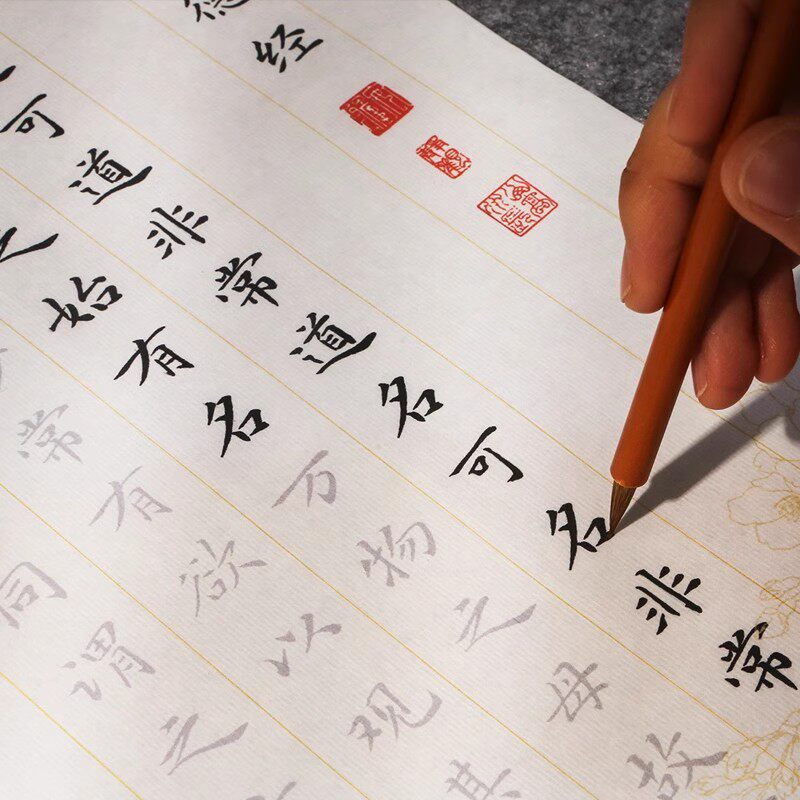 德经
可道非常道名可名非常
之始有名万物之母故
常有欲以观其
同谓之